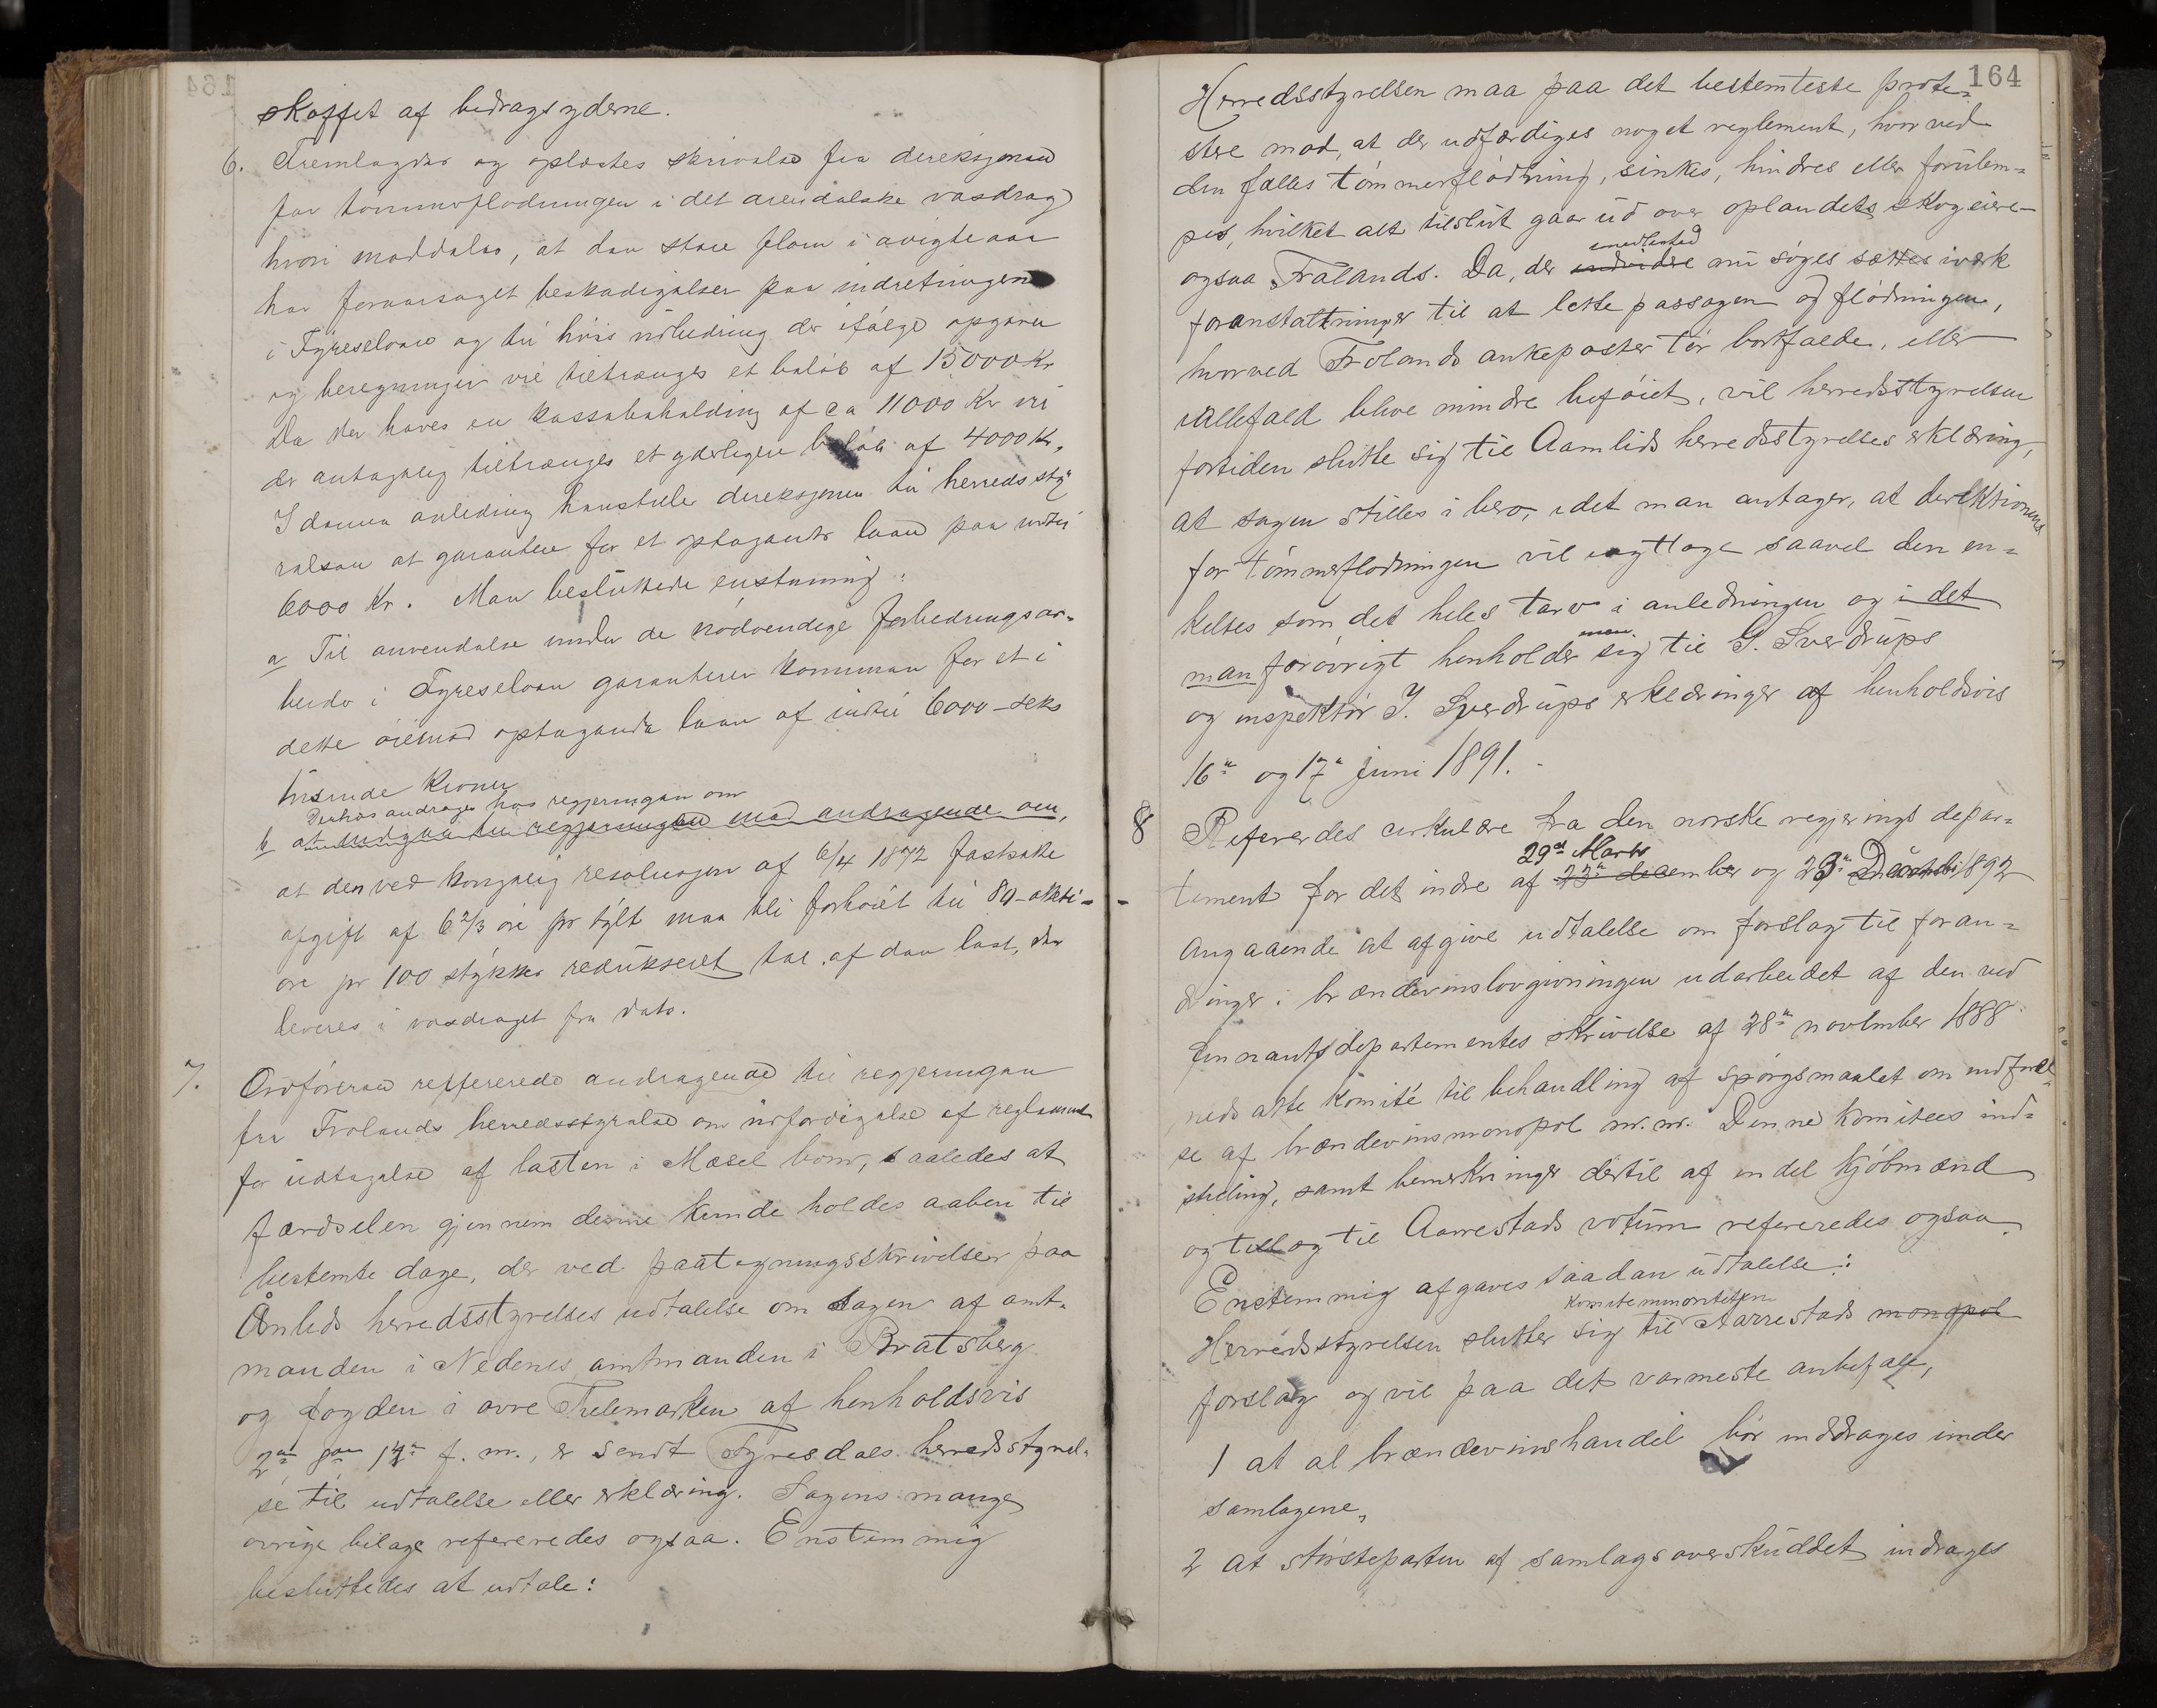 skaffet af bidragsyderne.
6. Fremlagdes og oplæstes skrivelse fra direksjonen
for tømmerflødningen i det arendalske vasdrag
hvori meddeles, at den store flom i avigte aar
har foraarsaget beskadigelser paa indretningen
i Fyreselvaen og til hvis udbedring der ifølge opgaver
og beregninger vil tiltrænges et beløb af 15000 Kr
Da der haves en kassabeholdning af ca 11000 Kr vil
der antagelig tiltrænges et yderligere beløb af 4000 Kr.
I denne anledning henstiller direksjonen til herredssty
relsen at garantere for et optagende laan paa indtil
6000 Kr. Man besluttede enstemmig:
a Til anvendelse under de nødvendige forbedringsar-
beider i Fyreselvaen garanterer kommunen for et i
dette øiemed optagende laan af indtil 6000 – seks
tusende Kroner
Derhos andrages hos regjeringen om
b at indgaa til regjeringen med andragende om,
at den ved kongelig resolusjon af 6/4 1872 fastsatte
afgift af 6 2/3 øre pr tylt maa bli forhøiet til 80 – otti –
øre pr 100 stykker redukseret tal af den last, der
leveres i vasdraget fra dato.
7. Ordføreren reffererede andragende til regjeringen
fra Frolands herredsstyrelse om udfærdigelse af reglement
for udtagelse af lasten i Mæsel bom, saaledes at
færdselen gjennem denne kunde holdes aaben til
bestemte dage, der ved paategningsskrivelser paa
Åmlids herredsstyrelses udtalelse om sagen af amt-
manden i Nedenes amtmanden i Bratsberg
og fogden i øvre Thelemarken af henholdsvis
2den 8de 14de f. m., er sendt Fyresdals herredsstyrel-
se til udtalelse eller erklæring. Sagens mange
øvrige bilage refereredes ogsaa. Enstemmig
besluttedes at udtale:
164
Herredsstyrelsen maa paa det bestemteste prote-
stere mod, at der udfærdiges noget reglement, hvorved
den fælles tømmerflødning, sinkes, hindres eller forulem-
pes, hvilket alt tilslut gaar ud over oplandets skogeiere –
imidlertid
ogsaa Frolands. Da, der endvidere nu søges sættes iværk
foranstaltninger til at lette passagen og flødningen,
hvorved Frolands ankeposter tør bortfalde, eller
iallefald blive mindre beføiet, vil herredsstyrelsen
fortiden slutte sig til Aamlids herredsstyrelses erklæring,
at sagen stilles i bero, idet man antager, at direktionen
for tømmerflødningen vil iagttage saavel den en-
keltes som det heles tarv i anledningen og i det
man
man forøvrigt henholder sig til G. Sverdrups
og inspektør J. Sverdrups erklæringer af henholdsvis
16de og 17de juni 1891.
8 Refereredes cirkulære fra den norske regjerings depar-
29de Marts
tement for det indre af 22de december og 23de 1892
angaaende at afgive udtalelse om forslag til foran-
dringer i brændevinslovgivningen udarbeidet af den ved
finnantsdepartementes skrivelse af 28de november 1888
nedsatte komité til behandling af spørgsmaalet om indførel-
se af brændevinsmonopol m.m. Denne komitees ind-
stilling, samt bemerkninger dertil af endel kjøbmænd
og tillæg til Aarrestads votum refereredes ogsaa.
Enstemmig afgaves saadan udtalelse:
komiteminoriteten
Herredsstyrelsen slutter sig til Aarrestads monopol
forslag og vil paa det varmeste anbefale,
1 at al brændevinshandel bør inddrages under
samlagene,
2 at størsteparten af samlagsoverskuddet inddrages